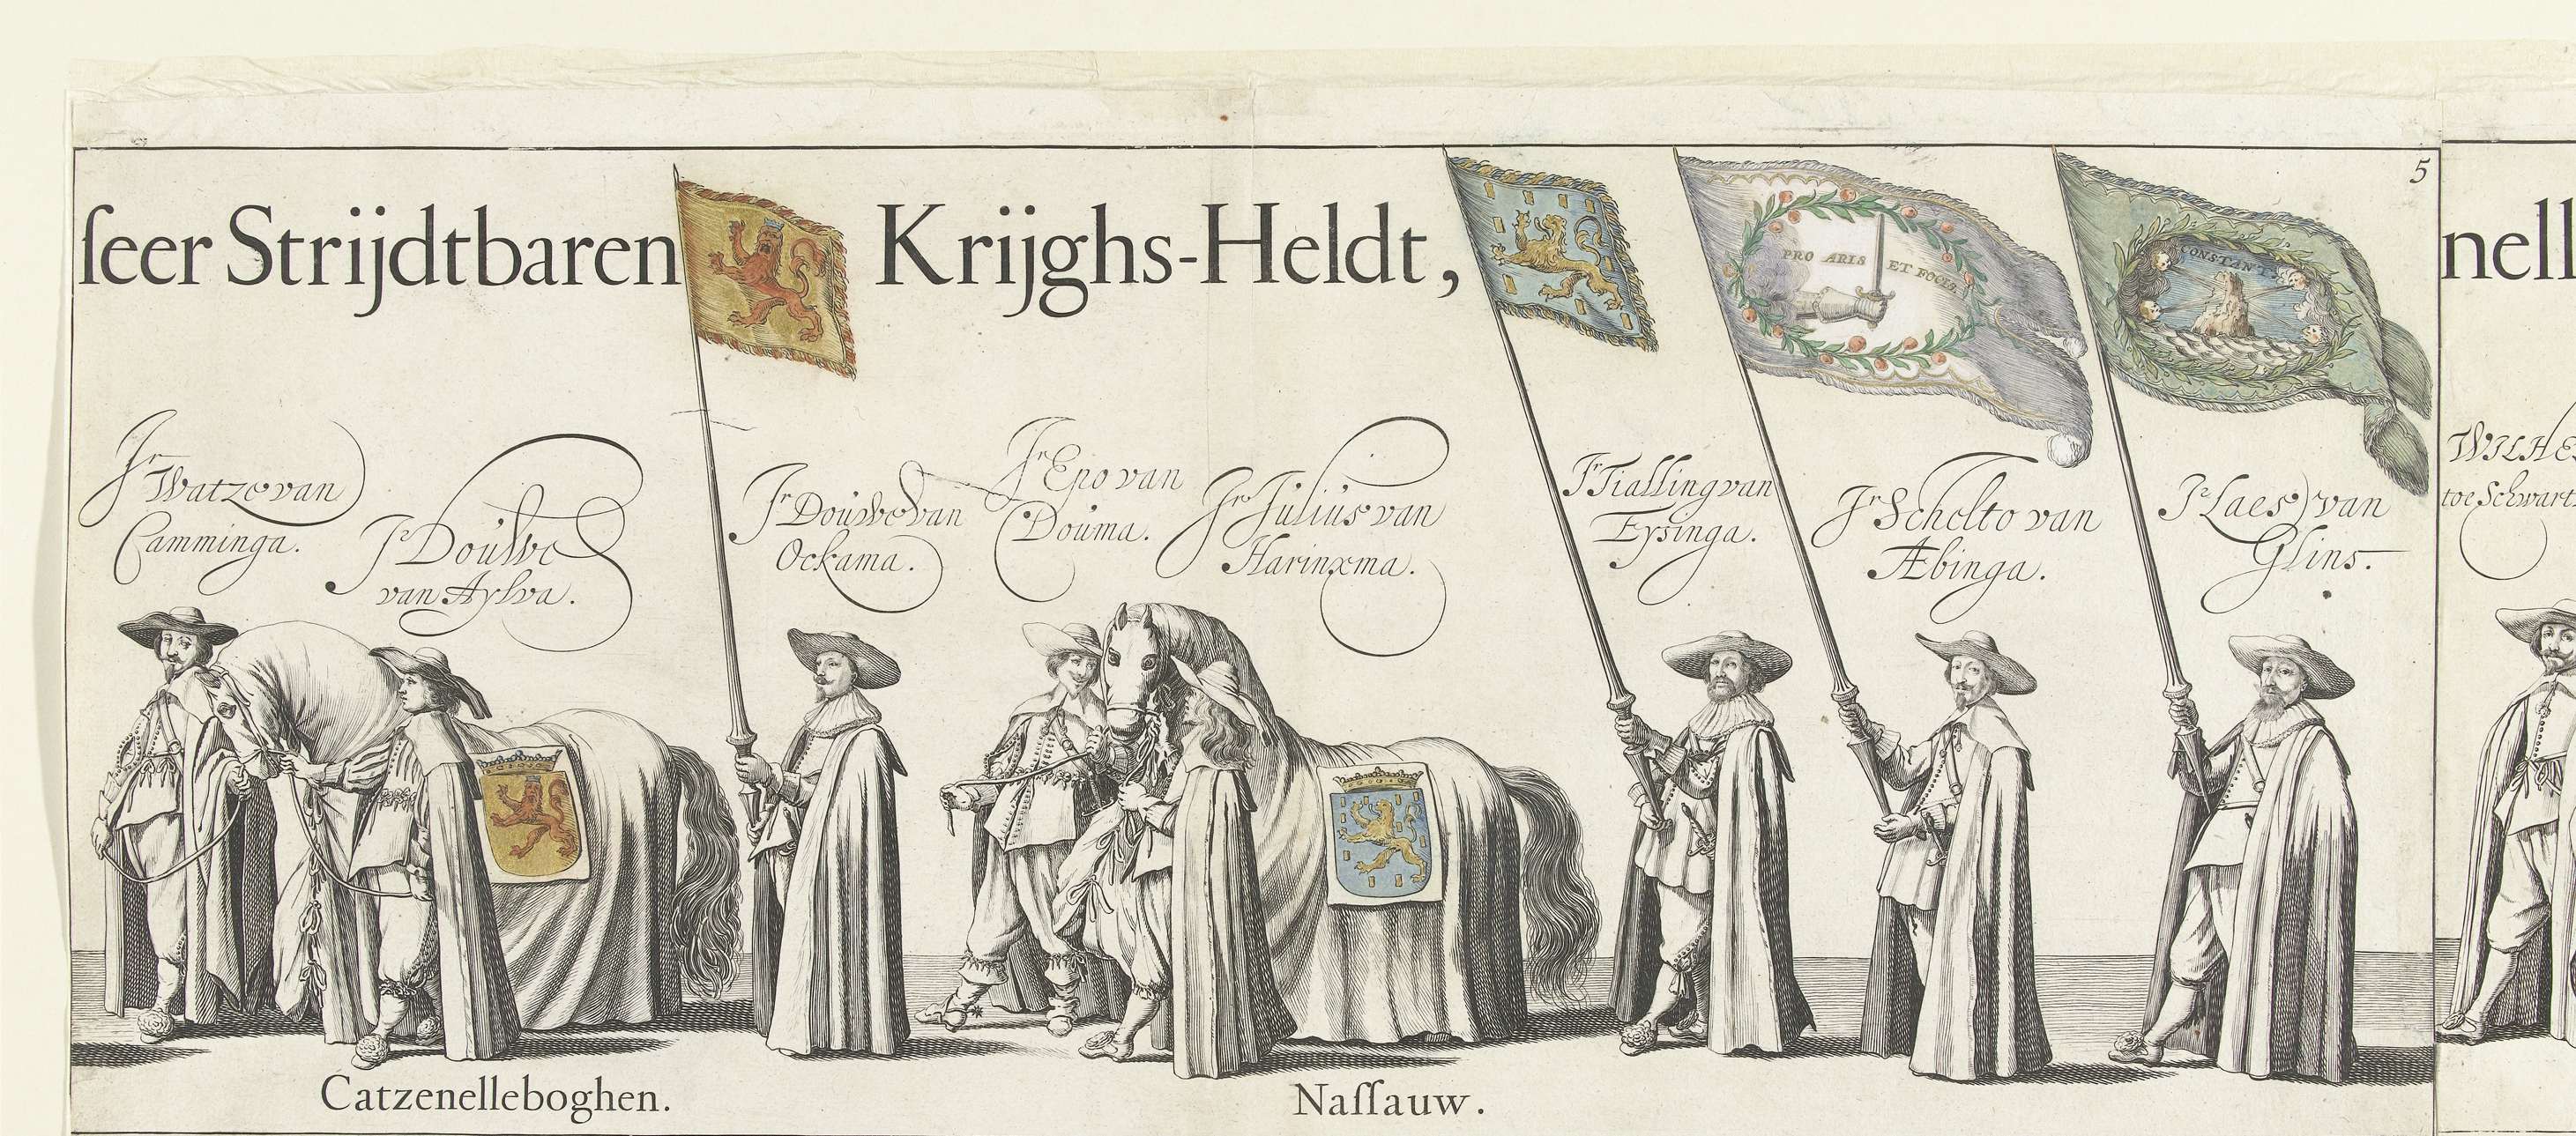 ſeer Strijdtbaren Krijghs-Heldt,
5
nell
PRO ARIS ET FOCIS.
CONSTANT
Jr Watze van
Camminga.
Jr Douwe
van Aylva.
Jr Douwe van
Ockama.
Jr Epo van
Douma.
Jr Julius van
Harinxma.
Jr Tialling van
Eysinga.
Jr Schelto van
Æbinga.
Jr Laes van
Glins.
WILHE
toe Schwart
Catzenelleboghen.
Naſſauw.